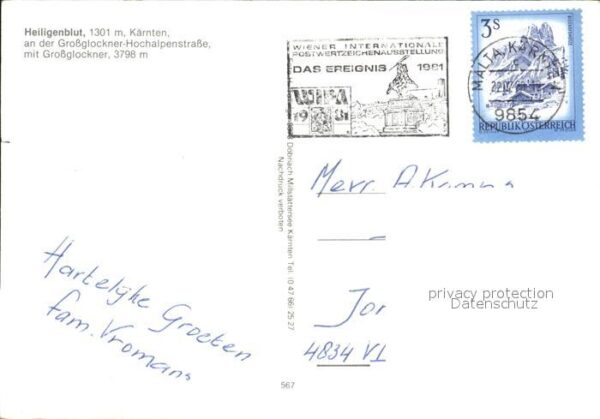 Heiligenblut, 1301 m, Kärnten,
an der Großglockner-Hochalpenstraße,
mit Großglockner, 3798 m
WIENER INTERNATIONALE
POSTWERTZEICHENAUSSTELLUNG
DAS EREIGNIS 1981
WIPA
1981
3S
MALTA, KÄRNTEN
9854
REPUBLIK ÖSTERREICH
Döbriach Millstättersee Kärnten Tel. (0 42 46)
Nachdruck verboten
Hartelijke Groeten
fam. Vromans
Mevr. A.
4834 VL
privacy protection
Datenschutz
567